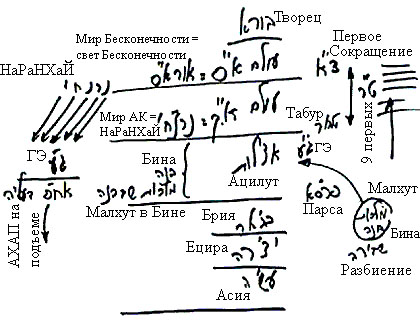 Творец
בורא
Мир Бесконечности =
свет Бесконечности
Первое
Сокращение
עולם א"ס = אור א"ס
צ"א
НаРаНХаЙ
נרנח"י
ט"ר
9 первых
Мир АК =
НаРаНХаЙ
עולם א"ק = נרנח"י
Табур
טבור
ГЭ
ГЭ
Бина
בינה
אצילות
Ацилут
Малхут в Бине
АХАП на
подъеме
פרסא
Парса
Малхут
מלכות
בינה
Бина
שבירה
Разбиение
Брия
בריאה
Ецира
יצירה
Асия
עשיה